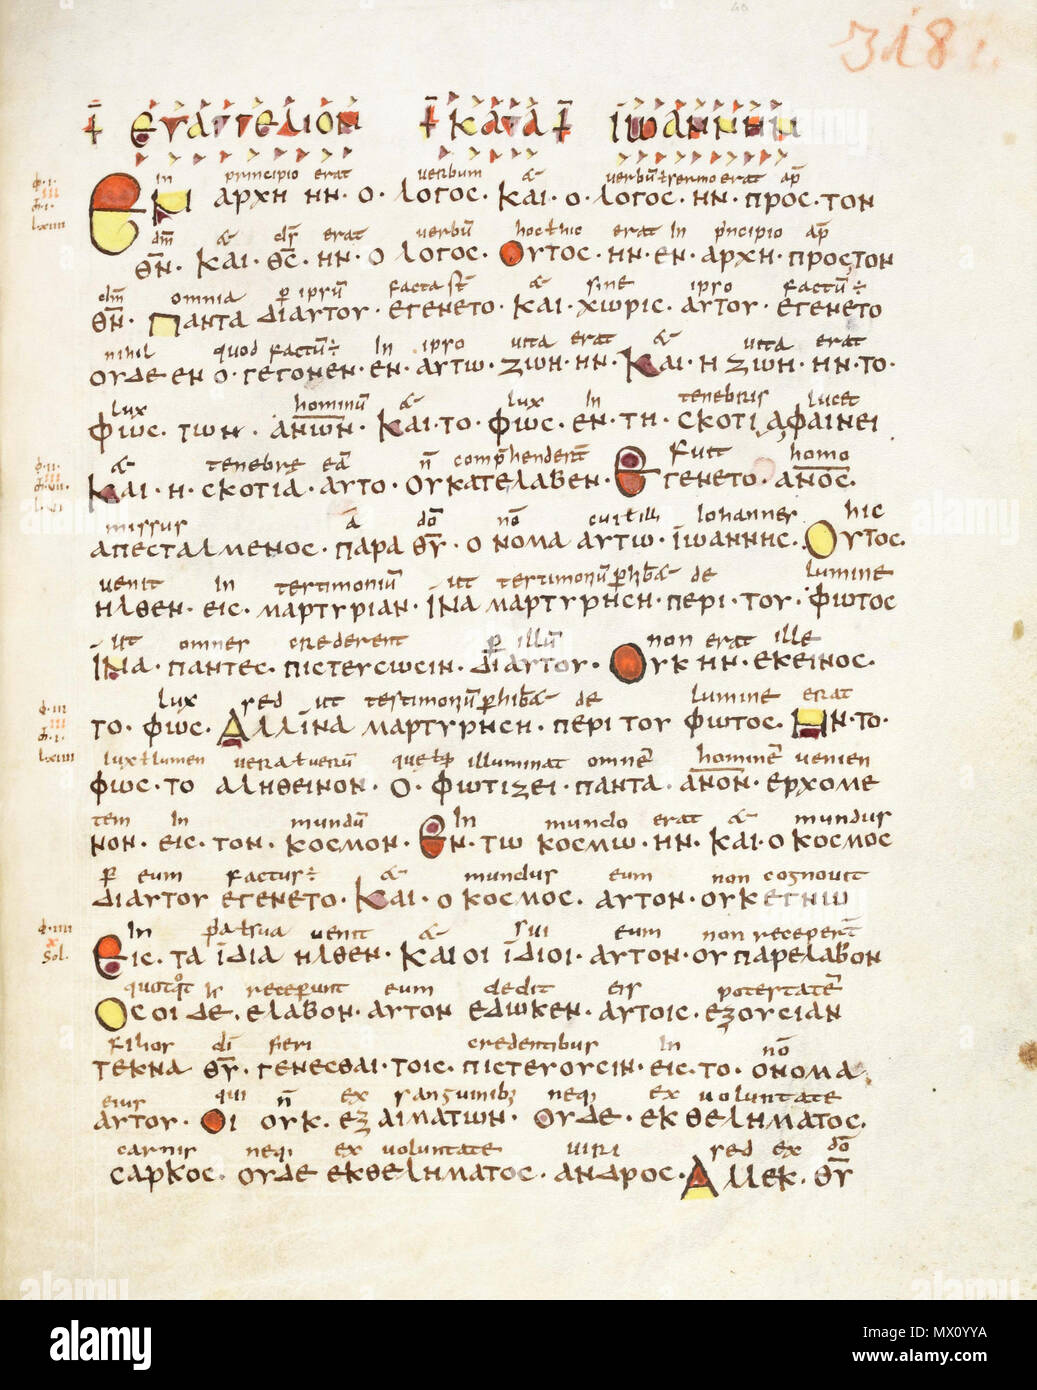 318
† ΕΥΑΓΓΕΛΙΟΝ † ΚΑΤΑ † ΙΩΑΝΝΗΝ
In principio erat verbum & verbū ł sermo erat ap̄
ΕΝ ΑΡΧΗ ΗΝ · Ο · ΛΟΓΟΣ · ΚΑΙ · Ο · ΛΟΓΟΣ · ΗΝ · ΠΡΟΣ · ΤΟΝ
dm̄ & ds̄ erat verbū hoc ł hic erat In principio ap̄
Θ̅Ν̅ · ΚΑΙ · Θ̅Σ̅ · ΗΝ · Ο ΛΟΓΟΣ · ΟΥΤΟΣ · ΗΝ · ΕΝ · ΑΡΧΗ · ΠΡΟΣ ΤΟΝ
dm̄ omnia p̱ ipsū facta st̄ & sine ipso factū ÷
Θ̅Ν̅ · ΠΑΝΤΑ ΔΙΑΥΤΟΥ · ΕΓΕΝΕΤΟ · ΚΑΙ · ΧΩΡΙΣ · ΑΥΤΟΥ · ΕΓΕΝΕΤΟ
nihil quod factū ÷ In ipso vita erat & vita erat
ΟΥΔΕ ΕΝ Ο · ΓΕΓΟΝΕΝ · ΕΝ · ΑΥΤΩ · ΖΩΗ · ΗΝ · ΚΑΙ · Η ΖΩΗ · ΗΝ · ΤΟ ·
lux hominū & lux In tenebris lucet
ΦΩΣ · ΤΩΝ · Α̅Ν̅Ω̅Ν̅ · ΚΑΙ · ΤΟ · ΦΩΣ · ΕΝ · ΤΗ · ΣΚΟΤΙΑ ΦΑΙΝΕΙ
& tenebre eā n̄ comprehendert̄ Fuit homo
ΚΑΙ · Η · ΣΚΟΤΙΑ · ΑΥΤΟ · ΟΥ ΚΑΤΕΛΑΒΕΝ · ΕΓΕΝΕΤΟ · Α̅Ν̅Ο̅Σ̅ ·
missus ā dō nō cui ł illi Iohannes hic
ΑΠΕΣΤΑΛΜΕΝΟΣ · ΠΑΡΑ Θ̅Υ̅ · Ο ΝΟΜΑ ΑΥΤΩ · ΙΩΑΝΝΗΣ · ΟΥΤΟΣ ·
venit In testimoniū ut testimoniū p̱hib& de lumine
ΗΛΘΕΝ · ΕΙΣ · ΜΑΡΤΥΡΙΑΝ · ΙΝΑ ΜΑΡΤΥΡΗΣΗ · ΠΕΡΙ · ΤΟΥ · ΦΩΤΟΣ
ut omnes crederent p̱ illū non erat ille
ΙΝΑ · ΠΑΝΤΕΣ · ΠΙΣΤΕΥΣΩΣΙΝ · ΔΙΑΥΤΟΥ · ΟΥΚ ΗΝ · ΕΚΕΙΝΟΣ ·
lux sed ut testimoniū p̱hib& de lumine erat
ΤΟ · ΦΩΣ · ΑΛΛΙΝΑ ΜΑΡΤΥΡΗΣΗ · ΠΕΡΙ ΤΟΥ ΦΩΤΟΣ · ΗΝ · ΤΟ ·
lux ł lumen vera ł verū illuminat omnē hominē venien
ΦΩΣ · ΤΟ ΑΛΗΘΙΝΟΝ · Ο · ΦΩΤΙΖΕΙ · ΠΑΝΤΑ · Α̅Ν̅Ο̅Ν̅ · ΕΡΧΟΜΕ
tem In mundū In mundo erat & mundus
ΝΟΝ · ΕΙΣ · ΤΟΝ · ΚΟΣΜΟΝ · ΕΝ · ΤΩ ΚΟΣΜΩ · ΗΝ · ΚΑΙ · Ο ΚΟΣΜΟΣ
p̱ eum factus ÷ & mundus eum non cognovit
ΔΙΑΥΤΟΥ ΕΓΕΝΕΤΟ · ΚΑΙ · Ο ΚΟΣΜΟΣ · ΑΥΤΟΝ · ΟΥΚ ΕΓΝΩ
In p̱atria venit & sui eum non recepert̄
ΕΙΣ · ΤΑ ΙΔΙΑ ΗΛΘΕΝ · ΚΑΙ ΟΙ ΙΔΙΟΙ · ΑΥΤΟΝ · ΟΥ ΠΑΡΕΛΑΒΟΝ
quotq̄t receperunt eum dedit eis potestatē
ΟΣΟΙ ΔΕ · ΕΛΑΒΟΝ · ΑΥΤΟΝ ΕΔΩΚΕΝ · ΑΥΤΟΙΣ · ΕΞΟΥΣΙΑΝ
filios dī fieri credentibus In nō
ΤΕΚΝΑ Θ̅Υ̅ · ΓΕΝΕΣΘΑΙ · ΤΟΙΣ · ΠΙΣΤΕΥΟΥΣΙΝ · ΕΙΣ · ΤΟ · ΟΝΟΜΑ
eius qui n̄ ex sanguinib; neqi ex voluntate
ΑΥΤΟΥ · ΟΙ ΟΥΚ · ΕΞ ΑΙΜΑΤΩΝ · ΟΥΔΕ · ΕΚ ΘΕΛΗΜΑΤΟΣ ·
carnis neqi ex voluntate viri sed ex dō
ΣΑΡΚΟΣ · ΟΥΔΕ ΕΚ ΘΕΛΗΜΑΤΟΣ · ΑΝΔΡΟΣ · ΑΛΛΕΚ · Θ̅Υ̅
Sol.
alamy
Image ID: MX0YYA
www.alamy.com